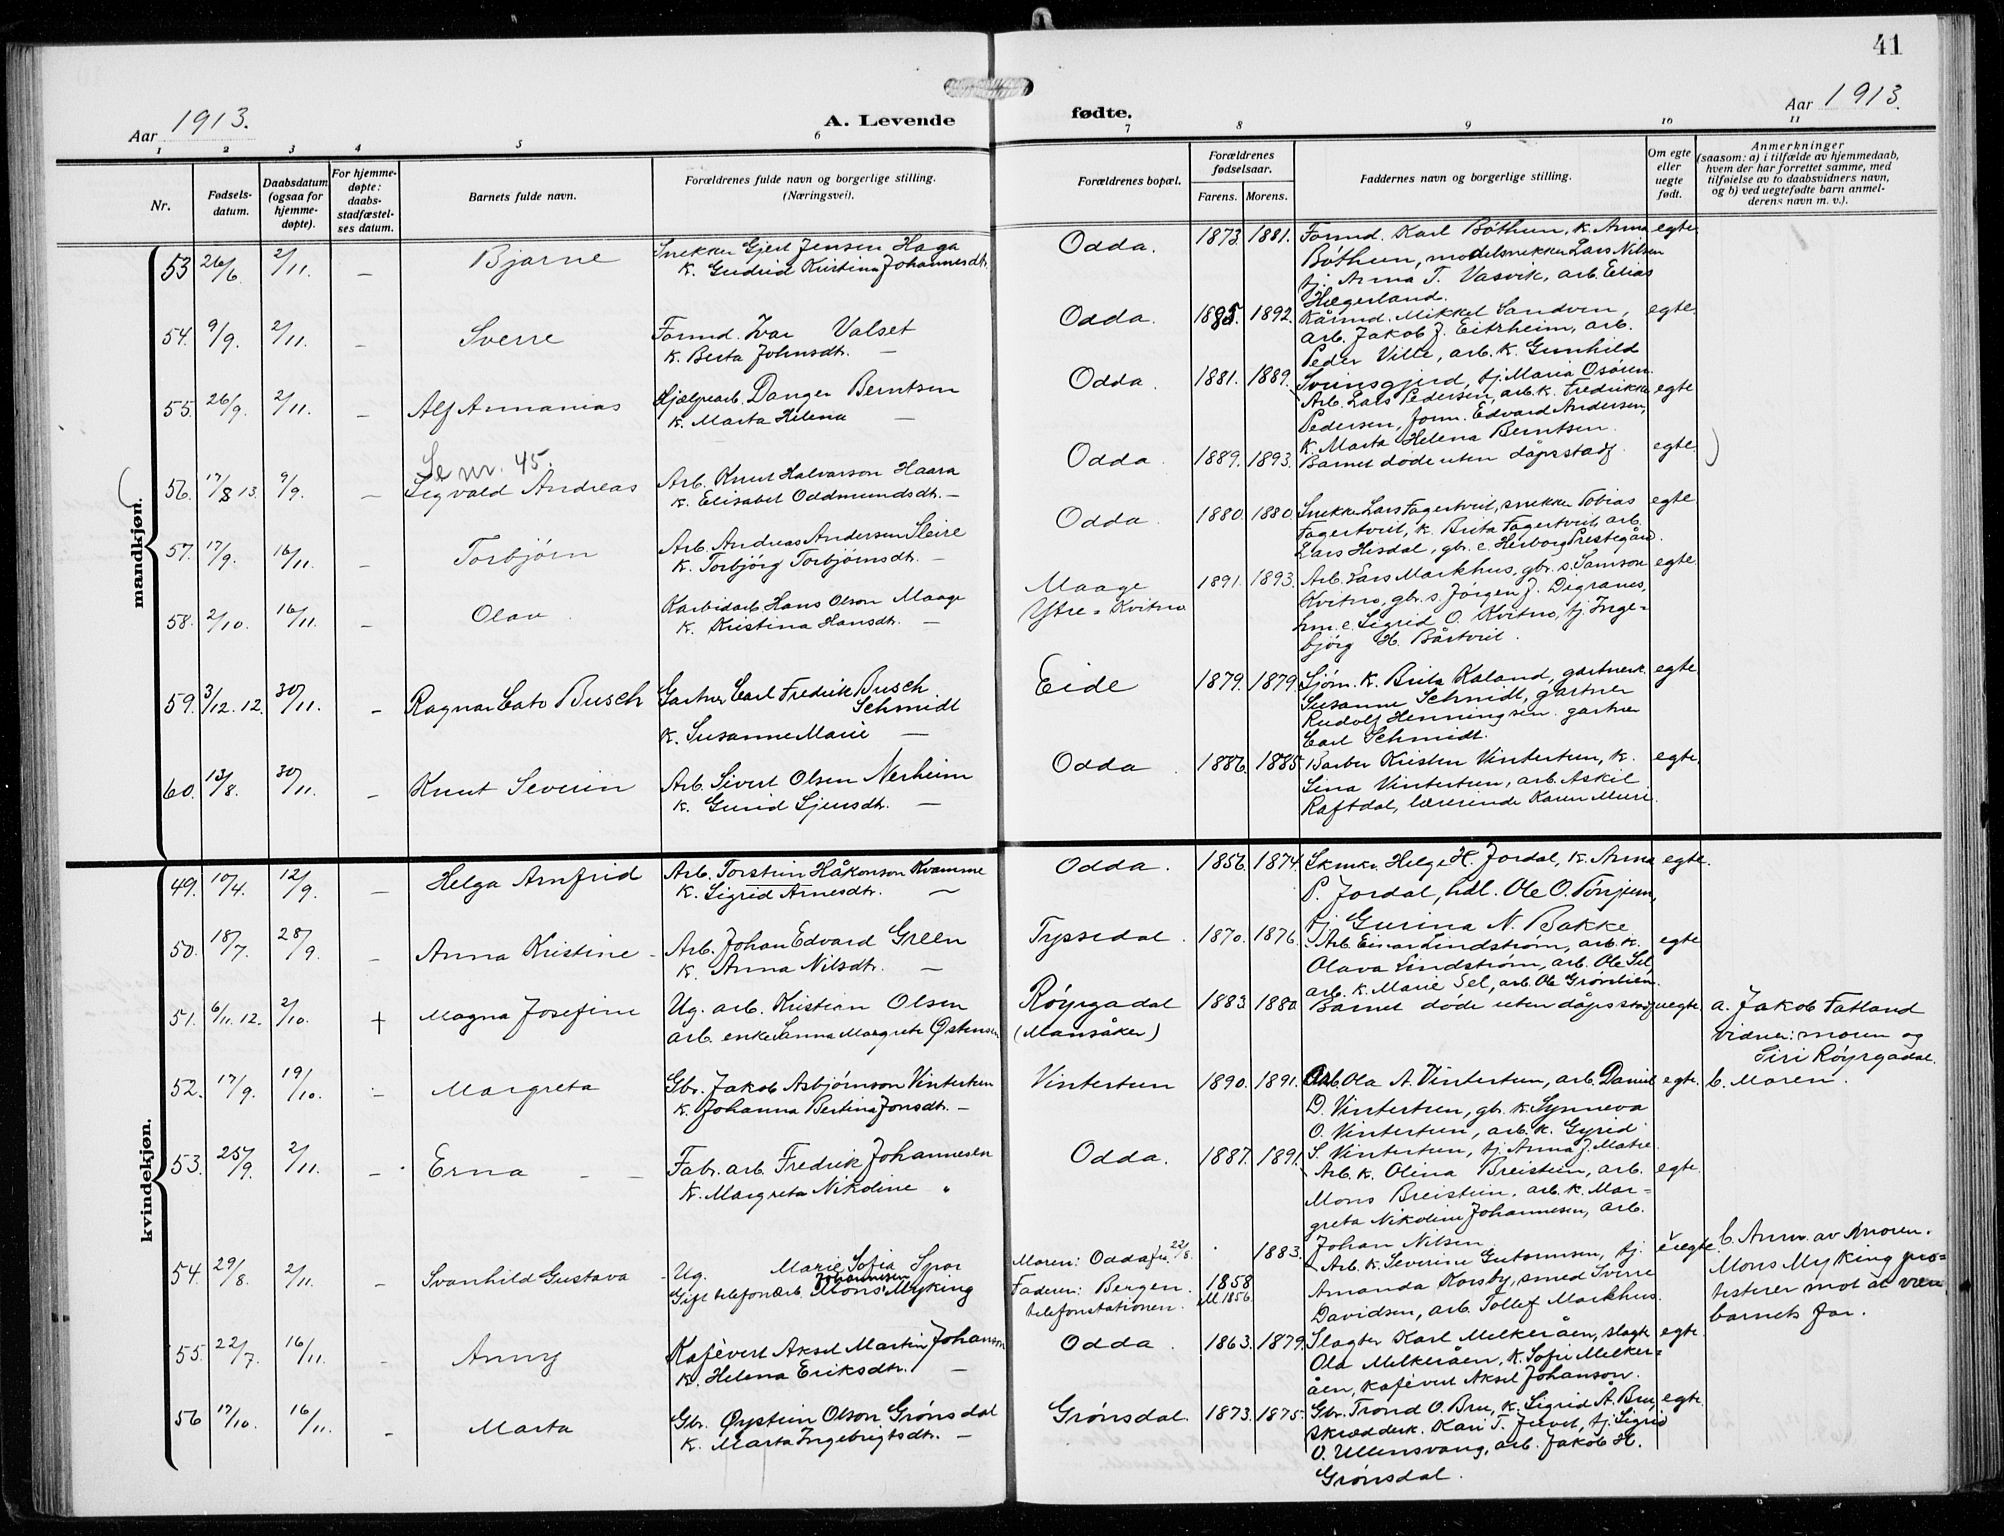 41
Aar 1913.
A. Levende fødte.
Aar 1913.
1 2 3 4 5 6 7 8 9 10 11
Nr.
Fødsels-
datum.
Daabsdatum
(ogsaa for
hjemme-
døpte).
For hjemme-
døpte:
daabs-
stadfæstel-
ses datum.
Barnets fulde navn.
Forældrenes fulde navn og borgerlige stilling.
(Næringsvei).
Forældrenes bopæl.
Forældrenes
fødselsaar.
Farens. Morens.
Faddernes navn og borgerlige stilling.
Om egte
eller
uegte
født.
Anmerkninger
(saasom: a) i tilfælde av hjemmedaab,
hvem der har forrettet samme, med
tilføielse av to daabsvidners navn,
og b) ved uegtefødte barn anmel-
derens navn m. v.).
mandkjøn.
53 26/6 2/11. – Bjarne
Snekker Gjert Jensen Haga
K. Gudrid Kristina Johannesdt.
Odda. 1873 1881.
Formd. Karl Bøthun, K. Anna
Bøthun, modelsnekker Lars Nilsen
tj. Anna T. Vasvik, arb. Elias
Hægerland.
egte
54. 9/9. 2/11. – Sverre
Formd. Ivar Valset
K. Berta Johnsdt. –
Odda. 1885. 1892.
Mikkel Sandven,
arb. Jakob J. Eitrheim, arb.
Peder Ville, arb. K. Gunhild
tj. Maria Osøren.
egte
55. 26/9. 2/11. – Alf Annanias
Hjælpearb. Danger Berntsen
K. Marta Helena –
Odda. 1881. 1889.
Arb. Lars Pedersen, arb. K. Fredrikke
Pedersen, form. Edvard Andersen,
K. Marta Helena Berntsen.
egte
Se nr. 45.
56. 17/8 13. 9/9. – Sigvald Andreas
Arb. Knut Halvarson Haara
K. Elisabet Oddmundsdt. –
Odda 1889. 1893.
Barnet døde uten dåpsstadf.
egte
57. 17/9. 16/11. – Torbjørn
Arb. Andreas Andersen Sleire
K. Torbjørg Torbjørnsdt. –
Odda. 1880. 1880
Snekker Lars Fagertveit, snekker Tobias
Fagertveit, K. Brita Fagertveit, arb.
Lars Hisdal, gbr. e. Herborg Prestegård.
egte
58. 2/10. 16/11. – Olav
Karbidarb. Hans Olson Maage
K. Kristina Hansdt. –
Maage
Ytre-Kvitno
1891. 1893.
Arb. Lars Markhus, gbr. s. Samson
Kvitno, gbr. s. Jørgen J. Digranes,
hm. e. Sigrid O. Kvitno, tj. Inge-
bjørg H. Bårtveit.
egte
59. 3/12. 12. 30/11. – Ragnar Cato Busch
Gartner Carl Fredrik Busch
Schmidt
K. Susanne Marie –
Eide 1879. 1879.
Sjøm. K. Brita Kaland, gartnerk.
Susanne Schmidt, gartner
Rudolf Henningsen. gartner
Carl Schmidt.
egte
60. 13/8. 30/11. – Knut Severin
Arb. Sivert Olsen Nerheim
K. Gurid Sjursdt. –
Odda 1886. 1885.
Barber Kristen Vintertun, K.
Sina Vintertun, arb. Askil
Raftdal, lærerinde Karen Mure.
egte
kvindekjøn.
49. 10/4. 12/9. – Helga Arnfrid
Arb. Torstein Håkonson Kvamme
K. Sigrid Arnesdt. –
Odda. 1856. 1874.
Helge H. Jordal, K. Anna
P. Jordal, hdl. Ole O. Tønjum,
tj. Gurina N. Bakke
egte.
50. 18/7. 28/9. – Anna Kristine
Arb. Johan Edvard Green
K. Anna Nilsdt. –
Tyssedal. 1870. 1876.
Arb. Einar Lindstrøm, arb. K.
Olava Lindstrøm, arb. Ole Sel
arb. K. Marie Sel, arb. Ole Grønlien.
egte
51. 6/11. 12. 2/10. + Magna Josefine
Ug. arb. Kristian Olsen
arb. enke Sanna Margrete Østensen
Røyrgadal
(Mansåker)
1883. 1880
Barnet døde uten dåpsstadf.
uegte
a. Jakob Fatland
vidner: moren og
Siri Røyrgadal.
b. Moren.
52. 17/9. 19/10. – Margreta
Gbr. Jakob Asbjørnson Vintertun
K. Johanna Bertina Jonsdt. –
Vintertun 1890. 1891.
Arb. Ola A. Vintertun, arb. Daniel
D. Vintertun, gbr. K. Synneva
O. Vintertun, arb. K. Gyrid
S. Vintertun, tj. Anna J. Matre.
egte.
53. 25/9. 2/11. – Erna
Fabr. arb. Fredrik Johannesen
K. Margreta Nikoline "
Odda. 1887. 1891.
Arb. K. Olina Breistein, arb.
Mons Breistein, arb. K. Mar-
greta Nikoline Johannesen, arb.
Johan Nilsen
egte.
54. 29/8. 2/11. – Svanhild Gustava
Ug. Marie Sofia Spor
Gift telefonarb. Mons Johannesen Myking
Moren: Odda fra 22/8.
Faderen: Bergen.
telefonstationen.
1858
M. 1856.
1883.
Arb. K. Severine Gutormsen, tj.
Amanda Korsby, smed Sverre
Davidsen, arb. Tollef Markhus.
uegte
b. Anm. av moren.
Mons Myking pro-
testerer mot at være
barnets far.
55. 22/7. 16/11. Anny
Kafévert Aksel Martin Johanson
K. Helena Eriksdt. –
Odda. 1863. 1879.
Slagter Karl Melkeråen, slagt.
Ola Melkeråen, K. Sofie Melker-
åen, kafévert Aksel Johanson.
egte
56 17/10. 16/11. – Marta
Gbr. Øystein Olson Grønsdal
K. Marta Ingebrigtsdt. –
Grønsdal. 1873. 1875.
Gbr. Trond O. Bru, K. Sigrid Å. Bru,
skrædderk. Kari T. Juvet, tj. Sigrid
O. Ullensvang, arb. Jakob H.
Grønsdal.
egte.